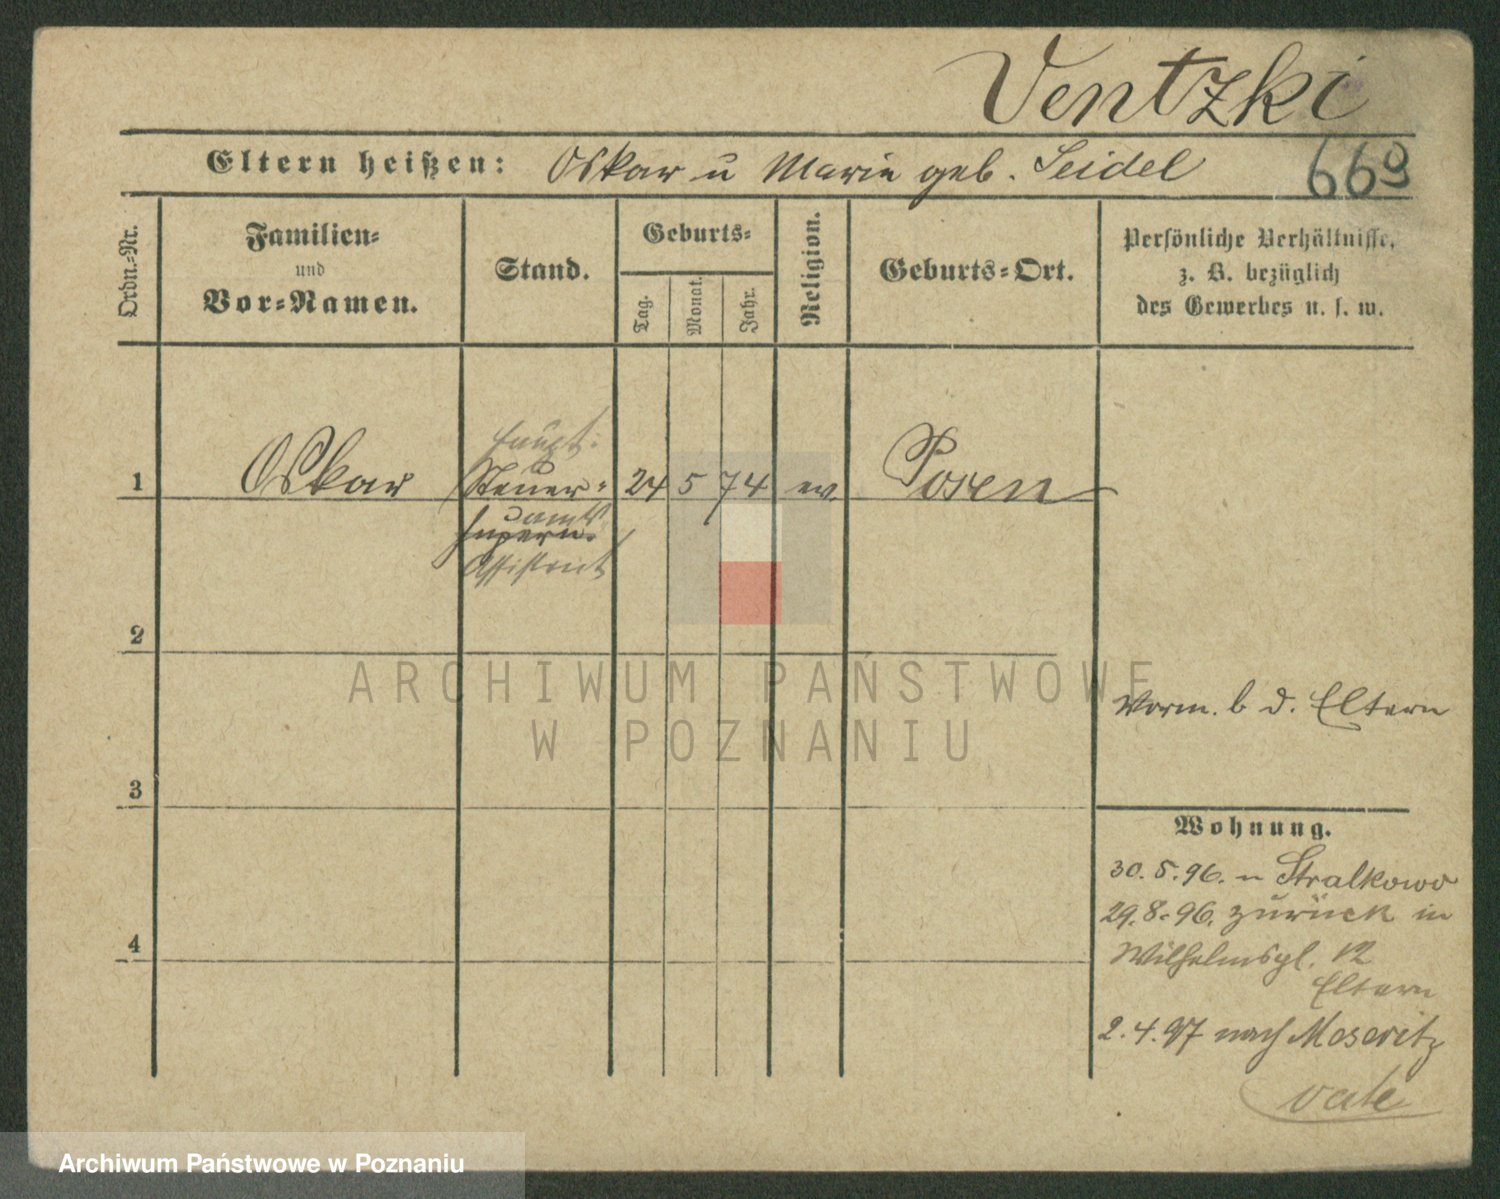 Ventzki
Eltern heißen: Oskar u Marie geb. Seidel
669
Ordn.-Nr.
Familien-
und
Vor-Namen.
Stand.
Geburts-
Tag.
Monat.
Jahr.
Religion.
Geburts-Ort.
Persönliche Verhältnisse,
z. B. bezüglich
des Gewerbes u. s. w.
Haupt-
1 Oskar Steuer- 24 5 74 ev. Posen
amts
Supern.
Assistent
2
ARCHIWUM PAŃSTWOWE
W POZNANIU
Vorm. b d. Eltern
3
Wohnung.
30.5.96. n Stralkowo
29.8.96. zurück in
4
Wilhelmspl. 12
Eltern
2.4.97 nach Meseritz
Archiwum Państwowe w Poznaniu